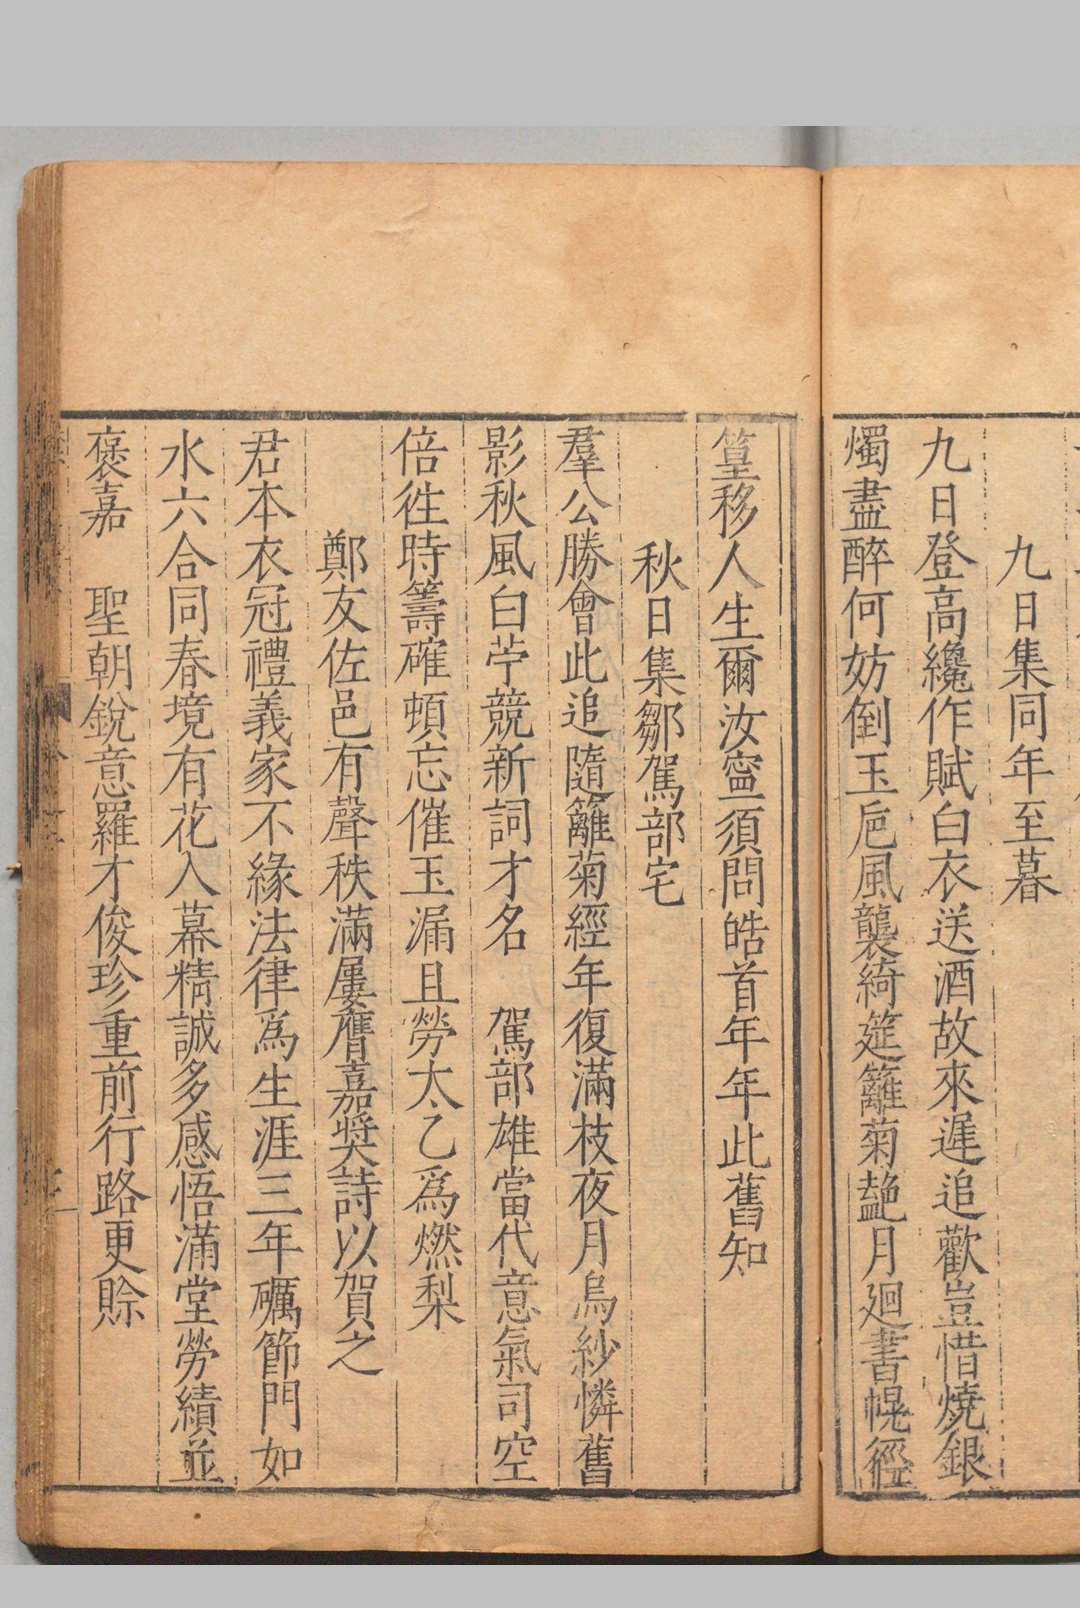 九日集同年至暮
九日登高纔作賦白衣送酒故來遲追歡豈惜燒銀
燭盡醉何妨倒玉巵風襲綺筵籬菊艶月廻書幌徑
篁移人生爾汝寧須問皓首年年此舊知
秋日集鄒駕部宅
羣公勝會此追隨籬菊經年復滿枝夜月烏紗憐舊
影秋風白苧競新詞才名　駕部雄當代意氣司空
倍徃時籌確頓忘催玉漏且勞太乙爲燃梨
鄭友佐邑有聲秩滿屢膺嘉奬詩以賀之
君本衣冠禮義家不緣法律爲生涯三年礪節門如
水六合同春境有花入幕精誠多感悟滿堂勞績並
褒嘉　聖朝銳意羅才俊珍重前行路更賒